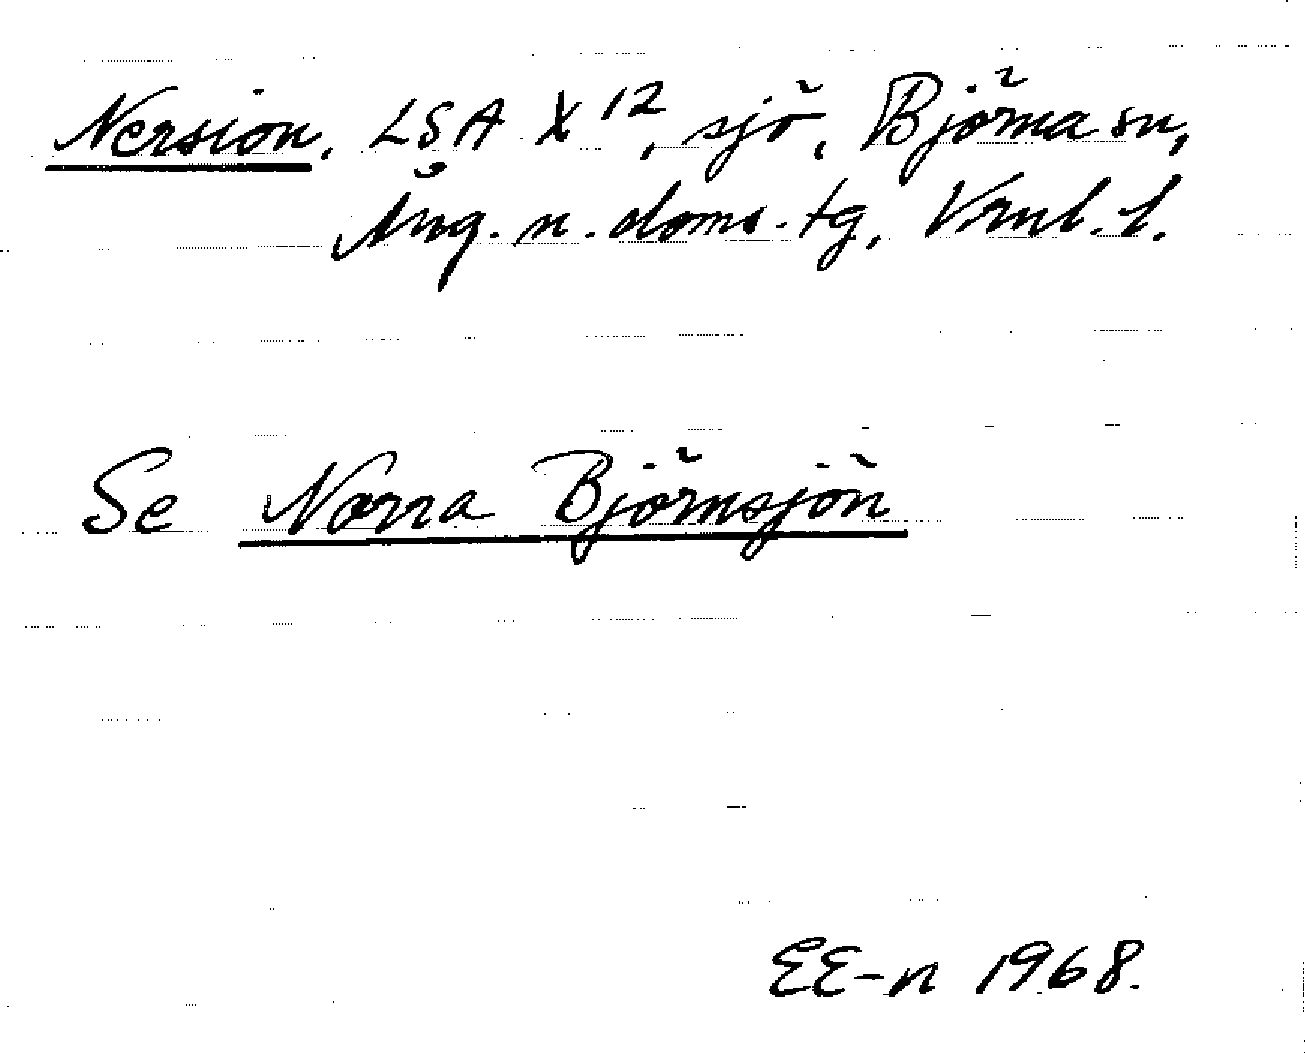 Nersion. LSA X 12, sjö, Björna sn,
Ång. n. doms.tg, Vrnl. l.
Se Norra Björnsjön
EE-n 1968.